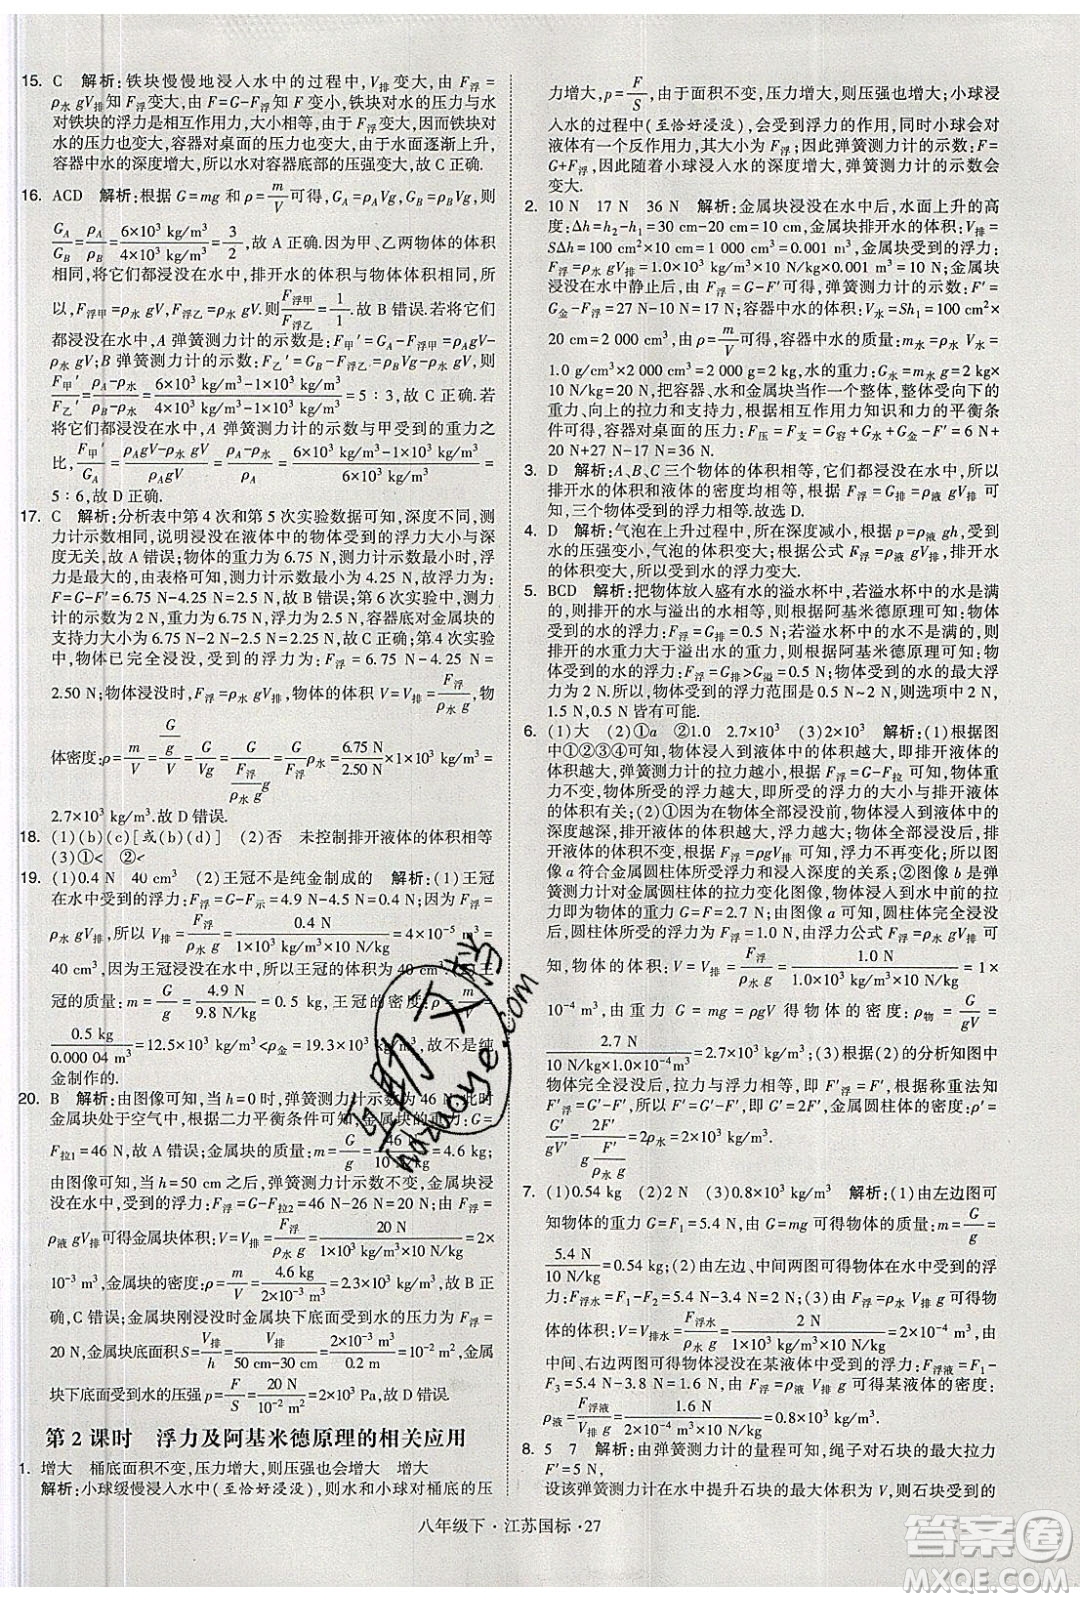 15. C 解析:铁块慢慢地浸入水中的过程中,V排变大,由 F浮=
ρ水 gV排知浮力变大,由 F=G-F浮知 F 变小,铁块对水的压力与水
对铁块的浮力是相互作用力,大小相等,由于 F浮变大,因而铁块对
水的压力也变大,容器对桌面的压力变大,由于水面逐渐上升,
容器中水的深度增大,所以水对容器底部的压强变大,故 C 正确.
16. ACD 解析:根据 G=mg 和 ρ=m/V可得,G_A=ρ_A Vg,G_B=ρ_B Vg,则
G_A/G_B=ρ_A/ρ_B=6×10³ kg/m³/4×10³ kg/m³=3/2,故 A 正确.因为甲、乙两物体的体积
相同,将它们都浸没在水中,排开水的体积与物体体积相同,所
以,F浮甲=ρ水 gV,F浮乙=ρ水 gV.则F浮甲/F浮乙=1/1.故 B 错误.若将它们
都浸没在水中,A 弹簧测力计的示数是:F甲′=G_A-F浮甲=ρ_A Vg-ρ水
gV;B 弹簧测力计的示数:F乙′=G_B-F浮乙=ρ_B gV-ρ水 gV.则
F甲′/F乙′=ρ_A gV-ρ水 gV/ρ_B gV-ρ水 gV=6×10³ kg/m³-1×10³ kg/m³/4×10³ kg/m³-1×10³ kg/m³=5∶3,故 C 正确.若
将它们都浸没在水中,A 弹簧测力计的示数与甲受到的重力之
比,F甲′/G_A=ρ_A gV-ρ水 gV/ρ_A gV=6×10³ kg/m³-1×10³ kg/m³/6×10³ kg/m³=
5∶6,故 D 正确.
17. C 解析:分析表中第 4 次和第 5 次实验数据可知,深度不同,测
力计示数相同,说明浸没在液体中受到的浮力大小与深度
无关,故 A 错误;物体的重力为 6.75 N,测力计最小示数为 4.25 N,
此时浮力最大,F浮=6.75 N-4.25 N=2.50 N,由表格可知,拉力
F=G-F浮=G-F′,故 B 错误;由表格可知,第 6 次实验,测力
计的示数为 2 N,重力为 6.75 N,容器底对金属块的
支持力大小为 6.75 N-2 N-2.50 N=2.25 N,故 C 正确;第 4 次实验
中,物体已完全浸没,受到的浮力:F浮=6.75 N-4.25 N=
2.50 N;物体浸没时,F浮=ρ水 gV排,V物=V排=F浮/ρ水 g,物
体密度:ρ=m/V=G/g/V=G/Vg=G/F浮/ρ水 g·g=6.75 N/2.50 N×1.0×10³ kg/m³=
2.7×10³ kg/m³.故 D 错误.
18. (1)(b)(c)[或(b)(d)] (2)否 未控制排开液体的体积相等
(3)①< ②<
19. (1)0.4 N 40 cm³ (2)王冠不是纯金制成的 解析:(1)王冠
在水中受到的浮力:F浮=G-F示=4.9 N-4.5 N=0.4 N;由 F浮=
ρ水 gV排,所以 V排=F浮/ρ水 g=0.4 N/1×10³ kg/m³×10 N/kg=4×10⁻⁵ m³=
40 cm³,因为王冠浸没在水中,所以王冠的体积为 40 cm³.(2)王
冠的质量:m=G/g=4.9 N/9.8 N/kg=0.5 kg,王冠的密度:ρ=m/V=
0.5 kg/0.000 04 m³=12.5×10³ kg/m³<ρ金=19.3×10³ kg/m³,故不是纯
金制作的.
20. B 解析:由图像可知,当 h=0 时,弹簧测力计示数为 46 N,此时
金属块处于空气中,根据二力平衡条件可知,金属块的重力:G=
F拉1=46 N,故 A 错误;金属块的质量:m=G/g=46 N/10 N/kg=4.6 kg,
由图像可知,当 h=50 cm 之后,弹簧测力计示数不变,金属块浸
没在水中,受到的浮力:F浮=G-F拉2=46 N-26 N=20 N,由F浮=
ρ液 gV排可得金属块体积:V=V排=F浮/ρ水 g=20 N/1.0×10³ kg/m³×10 N/kg=2×
10⁻³ m³,金属块的密度:ρ=m/V=4.6 kg/2×10⁻³ m³=2.3×10³ kg/m³,故 B 正确,
C 错误;金属块刚浸没时金属块下底面受到水的压力为 F浮=
20 N,金属块底面积 S=V排/h=V排/50 cm-30 cm=2×10⁻³ m³/0.2 m=1×10⁻² m²,金属
块下底面受到水的压强 p=F/S=20 N/1×10⁻² m²=2×10³ Pa,故 D 错误.
第 2 课时 浮力及阿基米德原理的相关应用
1. 增大 桶底面积不变,压力增大,则压强也会增大 增大
解析:小球缓慢浸入水中(至恰好浸没),则水和小球对桶底的压
力增大,由 p=F/S,由于面积不变,压力增大,则压强也增大;小球浸
入水的过程中(至恰好浸没),会受力浮力的作用,同时小球会对
液体有一个反作用力,因此弹簧测力计的示数:F=
G+F浮,所以随着小球浸入水的深度增大,弹簧测力计的示数会
变大.
2. 10 N 17 N 36 N 解析:金属块浸没在水中后,水面上升的高
度:Δh=h₂-h₁=30 cm-20 cm=10 cm,金属块排开水的体积:V排=
SΔh=100 cm²×10 cm=1 000 cm³=0.001 m³,金属块受到的浮力:
F浮=ρ水 gV排=1.0×10³ kg/m³×10 N/kg×0.001 m³=10 N;金属块
浸没在水中静止后,受到竖直向上的拉力:F′=
G金-F浮=27 N-10 N=17 N;容器中水的体积:V水=Sh₁=100 cm²×
20 cm=2 000 cm³,由 ρ=m/V可得,容器中水的质量:m水=ρ水 V水=
1.0 g/cm³×2 000 cm³=2 000 g=2 kg,水的重力:G水=m水 g=2 kg×
10 N/kg=20 N,把容器、水和金属块当作一个整体,整体受向下的
重力、向上的拉力和支持力,根据相互作用力知识和力的平衡条
件可得,容器对桌面的压力:F压=F支=G容+G水+G金-F′=6 N+
20 N+27 N-17 N=36 N.
3. D 解析:A、B、C 三个物体的体积相等,它们都浸没在水中,所以
排开水的体积和液体的密度均相等,根据 F浮=G排=ρ液 gV排可
知,这三个物体受到的浮力相等.故选 D.
4. D 解析:气泡在上升过程中,所在深度减小,根据 p=ρ液 gh,受到
水的压强变小,气泡的体积变大;根据公式 F浮=ρ液 gV排,排开水的
体积变大,所以受到水的浮力变大.
5. BCD 解析:把物体放入盛有水的溢水杯中,若溢水杯中的水是满
的,则排开的水与溢出的水相等,则根据阿基米德原理可知:物体
受到的水的浮力:F浮=G排=0.5 N;若溢水杯中的水是不满的,则
排开的水重力大于溢出水的重力,则根据阿基米德原理可知:物体
受到的水的浮力:F浮=G排>G溢=0.5 N;所以,物体受到水的最大浮
力 F浮≥0.5 N,所以物体受到的浮力范围大于等于 0.5 N,则选项中 2 N、
1.5 N、0.5 N 皆有可能.
6. (1)大 (2)①a ②1.0 2.7×10³ (3)2ρ水 解析:(1)根据图
中①②③④可知,物体浸入到液体中的体积越大,即排开液体的体
积越大,弹簧测力计的拉力越小,根据 F浮=G-F拉 可知,因为物体
重力不变,弹簧测力计的拉力越小,浮力越大,所以浮力与排开液体
的体积有关;(2)①因为在物体全部浸没前,物体浸入到液体中的
深度越深,F浮=ρgV排可知,浮力越大;物体全部浸没后,排
开液体的体积不变,根据 F浮=ρgV排可知,浮力不再变化;所以
图像 a 符合金属圆柱体受到的浮力与浸入深度的关系;②图像 b 是
弹簧测力计对金属圆柱体的拉力变化图像,根据浸入到水中前的拉
力即为实心物体的重力可知,G=F=2.7 N;由图像 a 可知,圆柱体完全浸没
后,圆柱体受到的浮力为 F浮=1.0 N,由浮力公式 F浮=ρ液 gV排可
知,物体的体积:V=V排=F浮/ρ水 g=1.0 N/1.0×10³ kg/m³×10 N/kg=1×
10⁻⁴ m³,由重力 G=mg=ρVg 可得物体的密度:ρ物=G/gV=
2.7 N/10 N/kg×1×10⁻⁴ m³=2.7×10³ kg/m³;(3)由(2)的分析知图中
物体未浸入水中时,拉力与浮力相等,即 F浮=F′,根据称重法知
F浮=G′-F′,所以 G′=2F′,根据阿基米德原理知物体的密度:ρ′=
G′/gV′=2F′/F浮/ρ水 g·g=2ρ水=2×1.0×10³ kg/m³=2×10³ kg/m³.
7. (1)0.54 kg (2)2 N (3)0.8×10³ kg/m³ 解析:(1)由左边图可
知物体的重力 G=F₁=5.4 N,由 G=mg 可得物体的质量:m=G/g=
5.4 N/10 N/kg=0.54 kg;(2)由左边、中间两图可得物体在水中受到的浮
力:F浮水=F₁-F₂=5.4 N-3.4 N=2 N;(3)由 F浮=ρ液 gV排 可得物
体的体积:V=V排水=F浮水/ρ水 g=2 N/1×10³ kg/m³×10 N/kg=2×10⁻⁴ m³,由
中间、右边两图可得物体浸没在某液体中受到的浮力:F浮液=F₁-
F₃=5.4 N-3.8 N=1.6 N,由 F浮=ρ液 gV排 可得某液体的密度:
ρ液=F浮液/V排液 g=1.6 N/2×10⁻⁴ m³×10 N/kg=0.8×10³ kg/m³.
8. 5 7 解析:由弹簧测力计的量程可知,绳子对石块的最大拉力
F′=5 N,由于弹簧测力计在水中提升石块的最大重力,
设该弹簧测力计在水中提升石块的最大体积为 V,则石块的最大
八年级下·江苏国标·27
互助文档
hdzuoye.com
答案圈
MXQE.COM